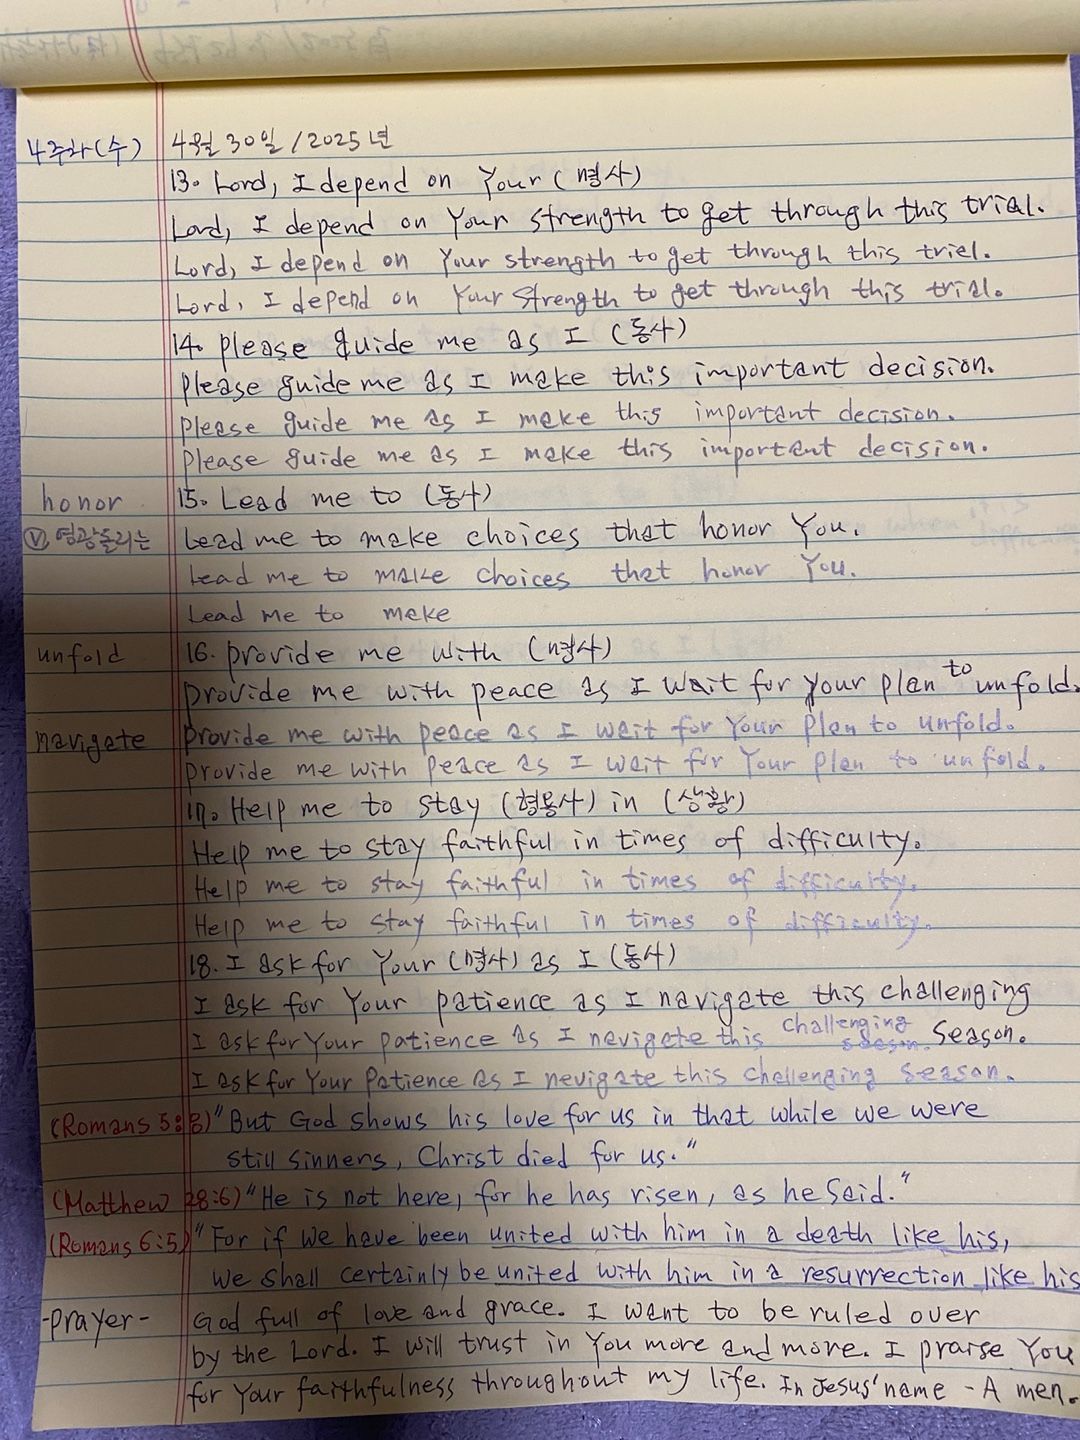 4주차(수) 4월 30일 / 2025년
13. Lord, I depend on Your (명사)
Lord, I depend on Your strength to get through this trial.
Lord, I depend on Your strength to get through this triel.
Lord, I depend on Your strength to get through this trial.
14. Please guide me as I (동사)
Please guide me as I make this important decision.
Please guide me as I make this important decision.
Please guide me as I make this important decision.
honor 15. Lead me to (동사)
ⓥ 영광돌리는 Lead me to make choices that honor You.
Lead me to make choices that honor You.
Lead me to make
unfold 16. Provide me with (명사)
Provide me with peace as I wait for your plan to unfold.
navigate Provide me with peace as I wait for Your plan to unfold.
Provide me with peace as I wait for Your plan to unfold.
17. Help me to stay (형용사) in (상황)
Help me to stay faithful in times of difficulty.
Help me to stay faithful in times of difficulty.
Help me to stay faithful in times of difficulty.
18. I ask for Your (명사) as I (동사)
I ask for Your patience as I navigate this challenging
I ask for Your patience as I nevigate this challenging season.
I ask for Your Patience as I nevigate this challenging season.
(Romans 5:8) "But God shows his love for us in that while we were
still sinners, Christ died for us."
(Matthew 28:6) "He is not here, for he has risen, as he said."
(Romans 6:5) "For if we have been united with him in a death like his,
we shall certainly be united with him in a resurrection like his
-prayer- God full of love and grace. I want to be ruled over
by the Lord. I will trust in You more and more. I praise You
for Your faithfulness throughout my life. In Jesus' name - A men.